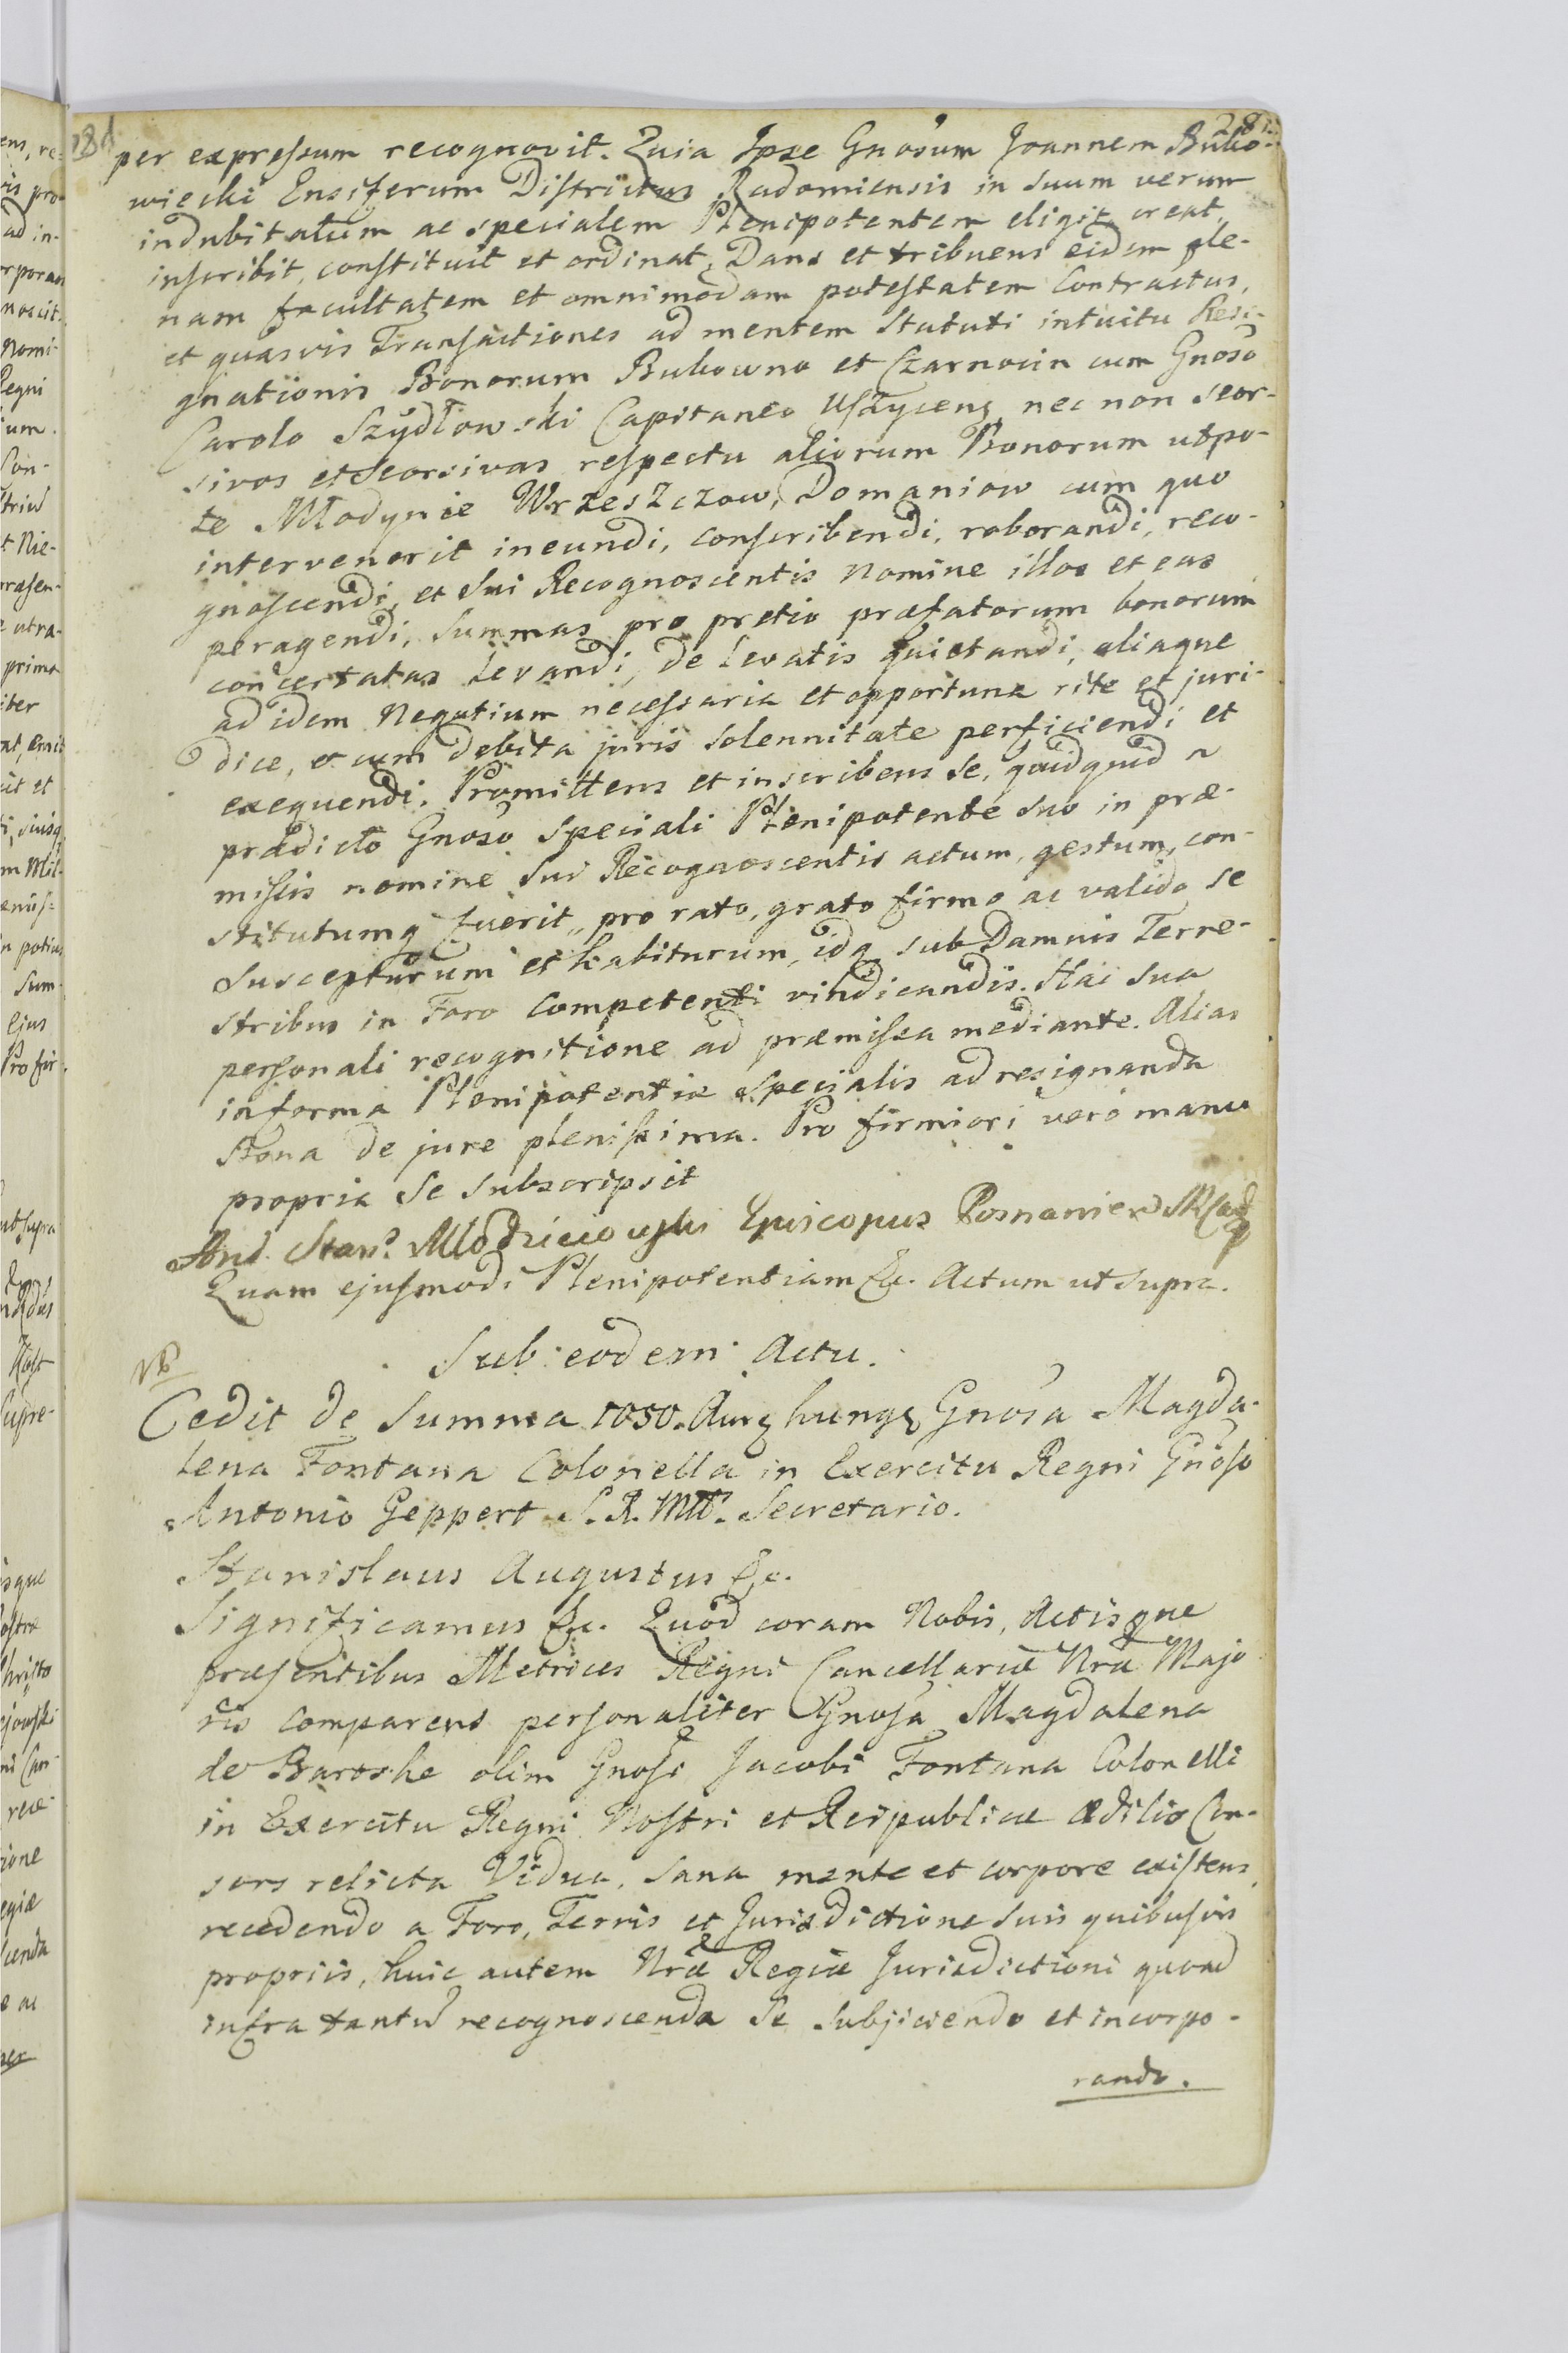 per expressum recognovit. Quia Ipse Gnosum Joannem Buko-
wiecki Ensiferum Districtus Radomiensis in suum verum
indubitatum ac specialem Plenipotentem eligit, creat,
inscribit, constituit et ordinat, Dans et tribuens eidem ple-
nam facultatem et omnimodam potestatem Contractus,
et quasvis Transactiones ad mentem Statuti intuitu Resi-
gnationis Bonorum Bukowno et Czarnocin cum Gnoso
Carolo Szydłowski Capitaneo nec non seor-
sivos et seorsivas respectu aliorum Bonorum utpo-
te Młodynie Wrzeszczow, Domaniow cum quo
intervenerit ineundi, conscribendi, roborandi, reco-
gnoscendi, et Sui Recognoscentis Nomine illos et eas
peragendi, Summas pro pretio præfatorum bonorum
concertatas Levandi, de Levatis quietandi, aliaque
ad idem Negotium necessaria et opportuna rite et juri-
dice, et cum debita juris solennitate perficiendi et
exequendi. Promittens et inscribens se, quidquid a
prædicto Gnoso Speciali Plenipotente suo in præ-
missis nomine Sui Recognoscentis actum, gestum, con-
stitutumq fuerit, pro rato, grato firmo ac valido se
Suscepturum et habiturum, idq sub Damnis Terre-
stribus in Foro Competenti vindicandis. Hac sua
personali recognitione ad præmissa mediante. Alias
in forma Plenipotentiæ Specialis ad resignanda
Bona de jure plenissima. Pro firmiori vero manu
propria Se Subscripsit
And. Stan. Młodzieiowski Episcopus Posnanien
Quam ejusmodi Plenipotentiam &c. Actum ut supra.
NB
Sub eodem Actu.
Cedit de Summa 1050. Aur hung Gnosa Magda-
lena Fontana Colonella in Exercitu Regni Gnoso
Antonio Geppert S. R. Mtt. Secretario.
Stanislaus Augustus &c.
Significamus &c. Quod coram Nobis, Actisque
præsentibus Metrices Regni Cancellariæ Nræ Majo
ris comparens personaliter Gnosa Magdalena
de Baroske olim Gnosi Jacobi Fontana Colonelli
in Exercitu Regni Nostri et Reipublicæ Ædilis Con-
sors relicta Vidua, sana mente et corpore existens,
recedendo a Foro, Terris et Jurisdictione suis quibusvis
propriis, huic autem Nræ Regiæ Jurisdictioni quoad
infra tantu recognoscenda Se Subjiciendo et incorpo-
rando.